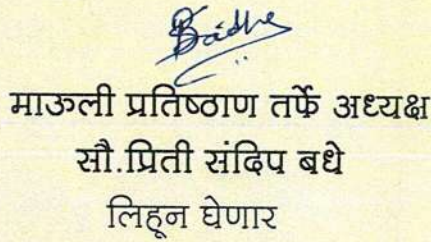 Badhe
माऊली प्रतिष्ठाण तर्फे अध्यक्ष
सौ.प्रिती संदिप बधे
लिहून घेणार